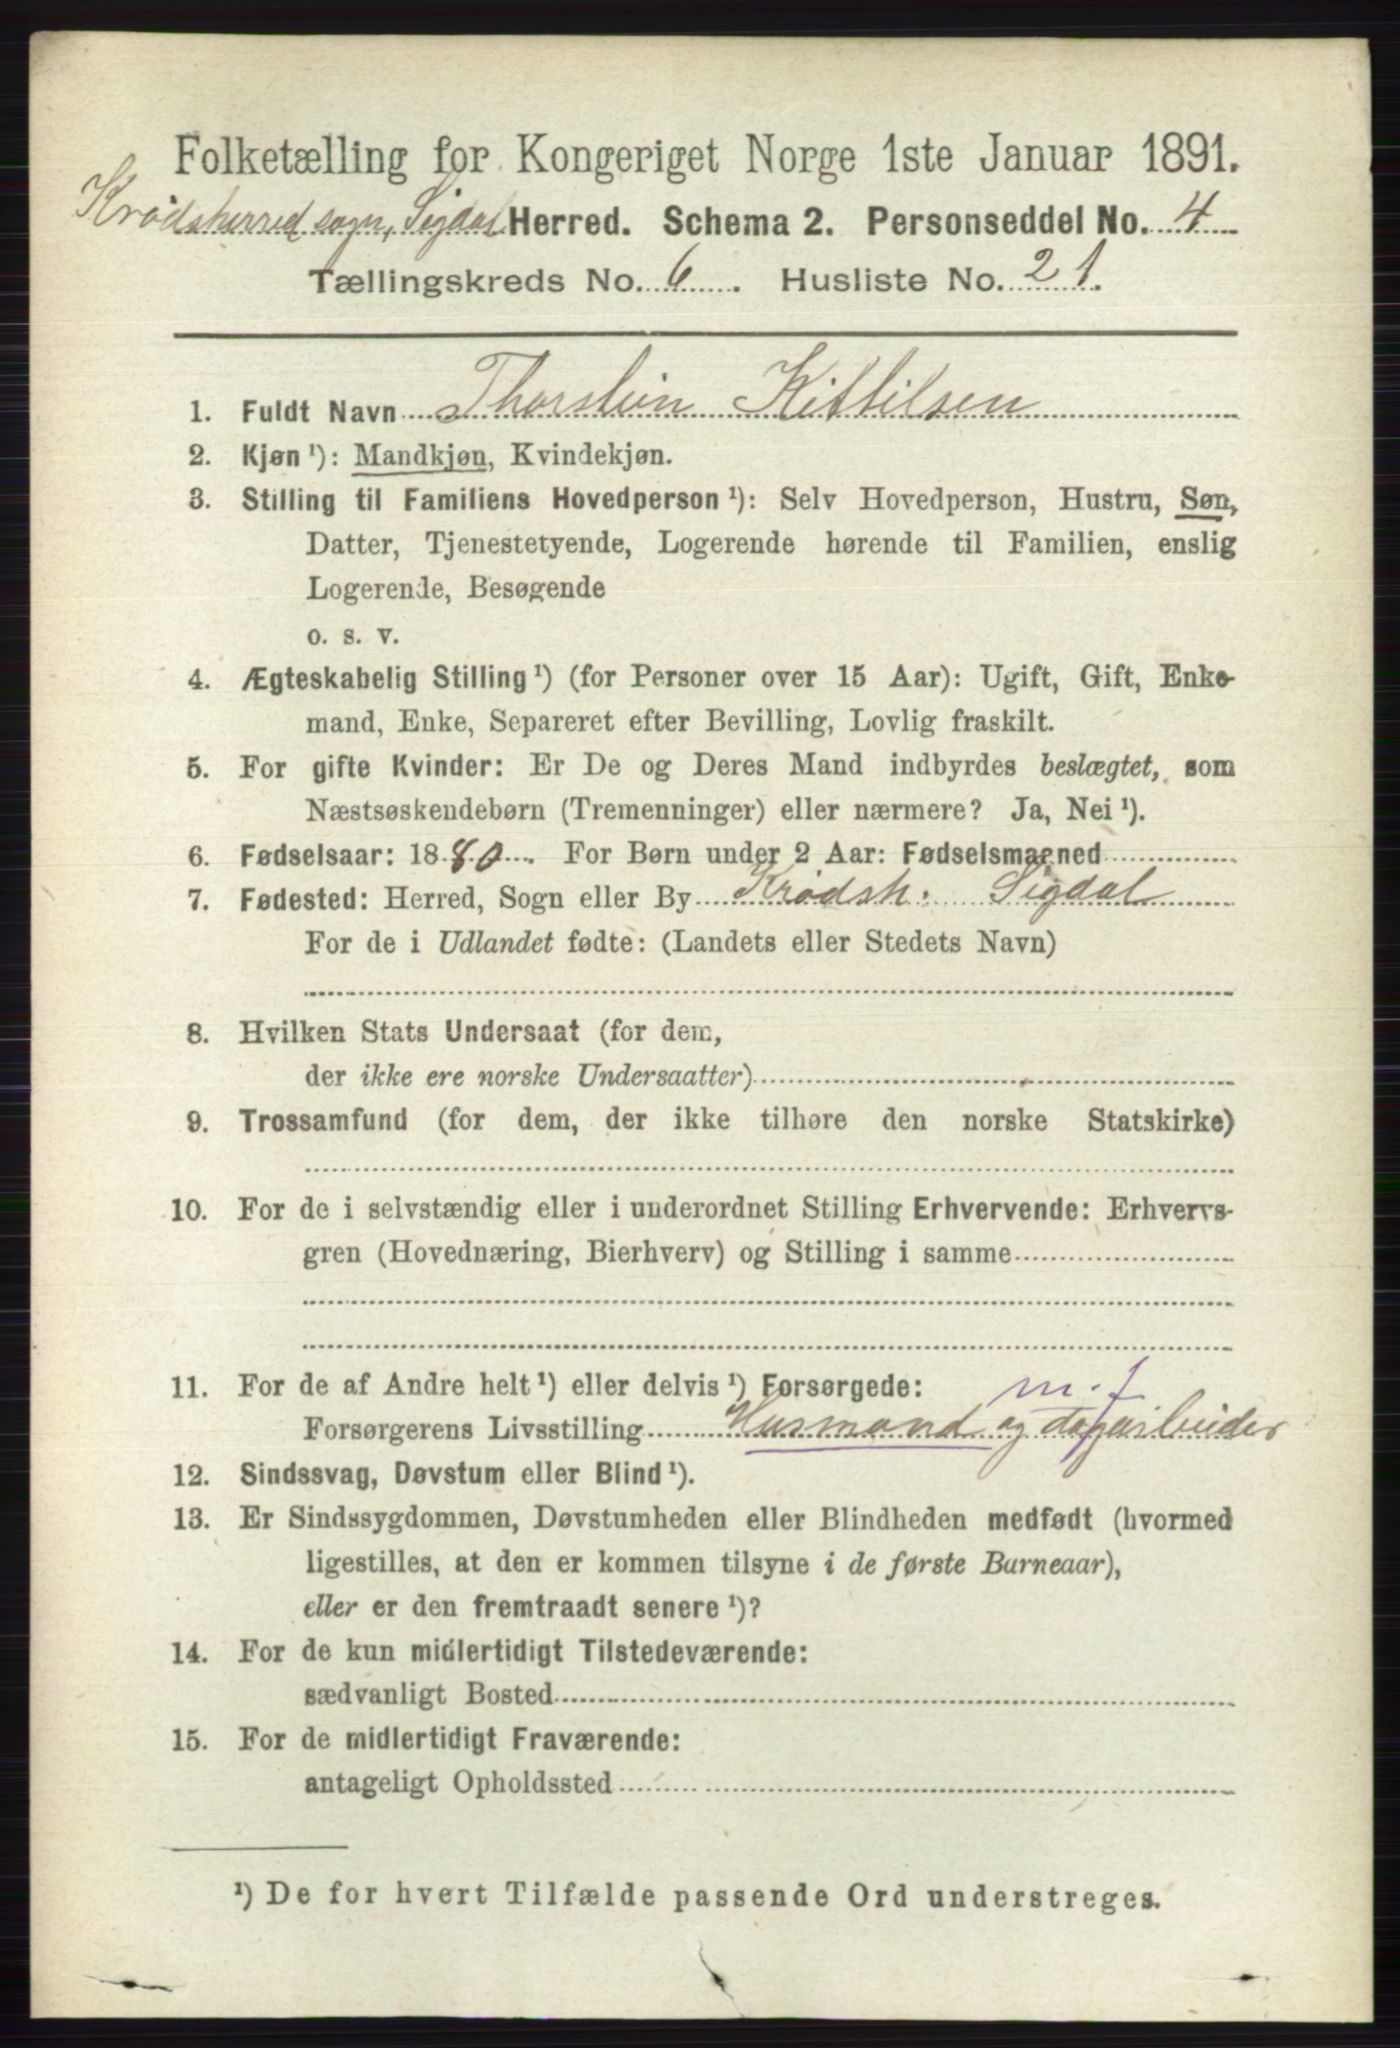 Folketælling for Kongeriget Norge 1ste Januar 1891.
Krødsherred sogn, Sigdal Herred. Schema 2. Personseddel No. 4
Tællingskreds No. 6. Husliste No. 21.
1. Fuldt Navn Thorstein Kittilsen
2. Kjøn¹): Mandkjøn, Kvindekjøn.
3. Stilling til Familiens Hovedperson¹): Selv Hovedperson, Hustru, Søn,
Datter, Tjenestetyende, Logerende hørende til Familien, enslig
Logerende, Besøgende
o. s. v.
4. Ægteskabelig Stilling¹) (for Personer over 15 Aar): Ugift, Gift, Enke-
mand, Enke, Separeret efter Bevilling, Lovlig fraskilt.
5. For gifte Kvinder: Er De og Deres Mand indbyrdes beslægtet, som
Næstsøskendebørn (Tremenninger) eller nærmere? Ja, Nei¹).
6. Fødselsaar: 1880. For Børn under 2 Aar: Fødselsmaaned
7. Fødested: Herred, Sogn eller By Krødsh. Sigdal
For de i Udlandet fødte: (Landets eller Stedets Navn)
8. Hvilken Stats Undersaat (for dem,
der ikke ere norske Undersaatter)
9. Trossamfund (for dem, der ikke tilhøre den norske Statskirke)
10. For de i selvstændig eller i underordnet Stilling Erhvervende: Erhvervs-
gren (Hovednæring, Bierhverv) og Stilling i samme
11. For de af Andre helt¹) eller delvis¹) Forsørgede: m. f
Forsørgerens Livsstilling Husmand og dagarbeider
12. Sindssvag, Døvstum eller Blind¹).
13. Er Sindssygdommen, Døvstumheden eller Blindheden medfødt (hvormed
ligestilles, at den er kommen tilsyne i de første Barneaar),
eller er den fremtraadt senere¹)?
14. For de kun midlertidigt Tilstedeværende:
sædvanligt Bosted
15. For de midlertidigt Fraværende:
antageligt Opholdssted
¹) De for hvert Tilfælde passende Ord understreges.